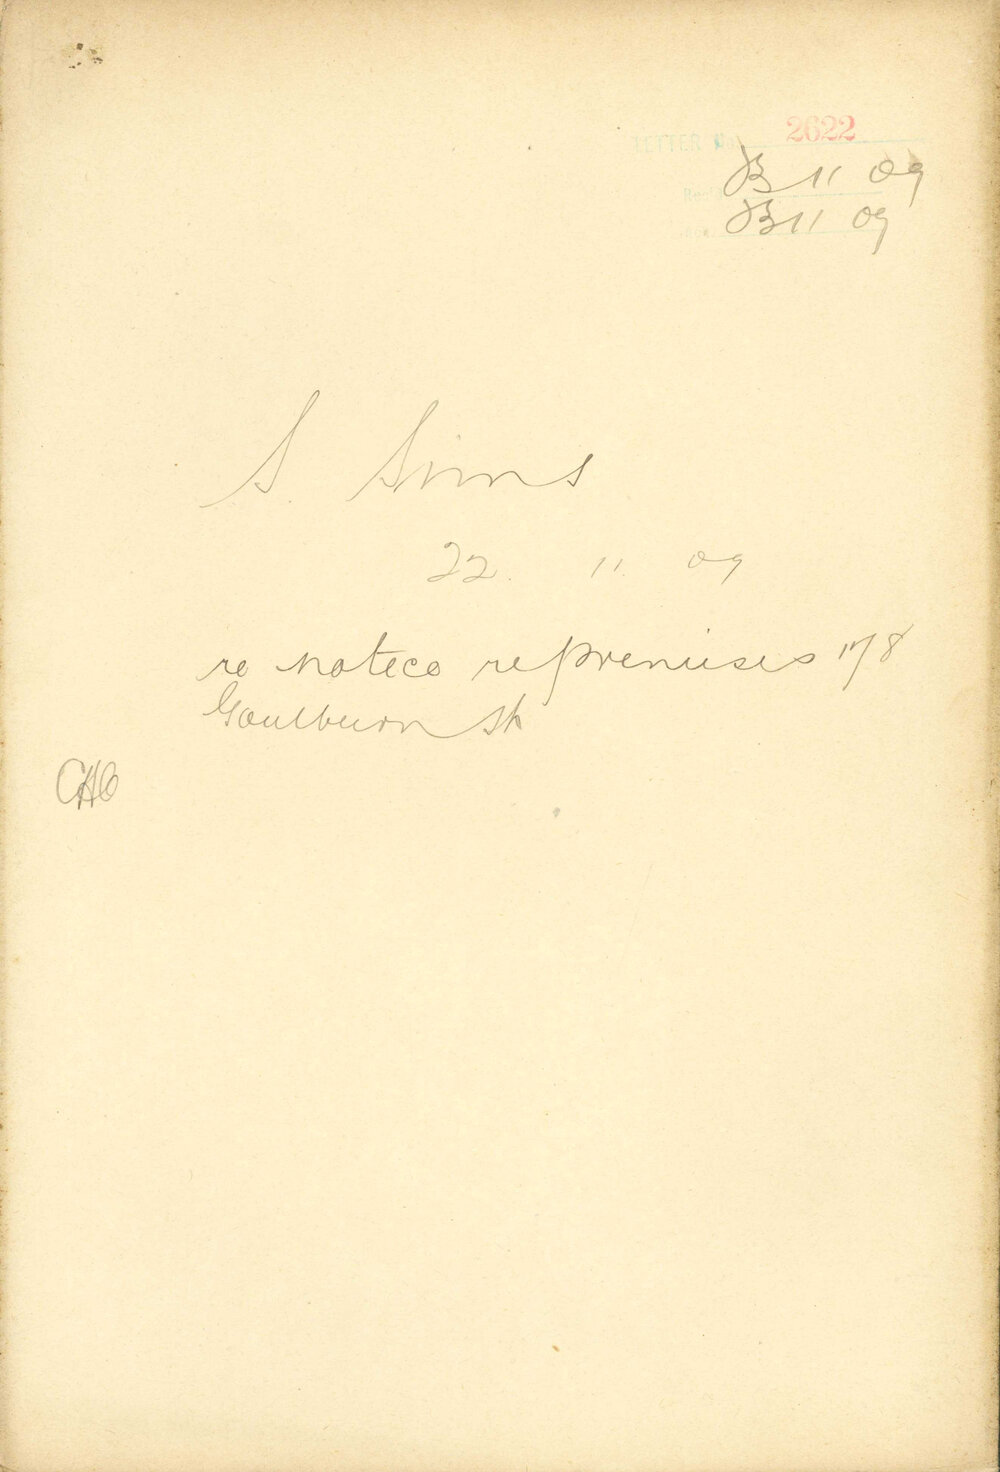 LETTER No. 2622
Rec'd 23 11 09
23 11 09
S. Sims
22. 11. 09
re notice re premises 178
Goulburn St
CHC